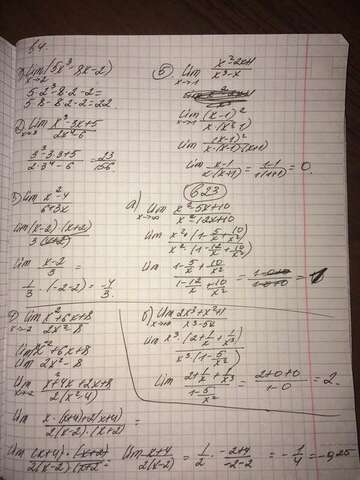 б4.
lim (5x³-8x-2)
x→2
5·2³-8·2-2=
5·8-8·2-2=22.
lim x³-3x+5
3³-3·3+5 = 23
lim x²-4 / 6+3x
lim (x-2)(x+2) / 3(x+2)
lim x-2 / 3 =
1/3 · (-2-2) = -4/3.
lim x²+6x+8 / 2x²-8
x→-2
lim x²+6x+8
lim 2x²-8
lim x²+4x+2x+8 / 2(x²-4)
lim x·(x+4)+2(x+4) / 2(x-2)·(x+2) =
lim (x+4)·(x+2) / 2(x-2)·(x+2) = lim x+4 / 2(x-2) = 1/2 · -2+4 / -2-2 = -1/4 = -0,25
б) lim x²-2x+1 / x³-x
x→1
lim (x-1)² / x·(x²-1)
lim (x-1)² / x·(x-1)·(x+1)
lim x-1 / x·(x+1) = 1-1 / 1(1+1) = 0.
б23
а) lim x²-5x+10 / x²-12x+10
x→∞
lim x²·(1-5/x+10/x²) / x²·(1-12/x+10/x²)
lim 1-5/x+10/x² / 1-12/x+10/x² = 1-0+0 / 1-0+0 = 1
б) lim 2x³+x²+1 / x³-5x
x→∞
lim x³·(2+1/x+1/x³) / x³(1-5/x²)
lim 2+1/x+1/x³ / 1-5/x² = 2+0+0 / 1-0 = 2.